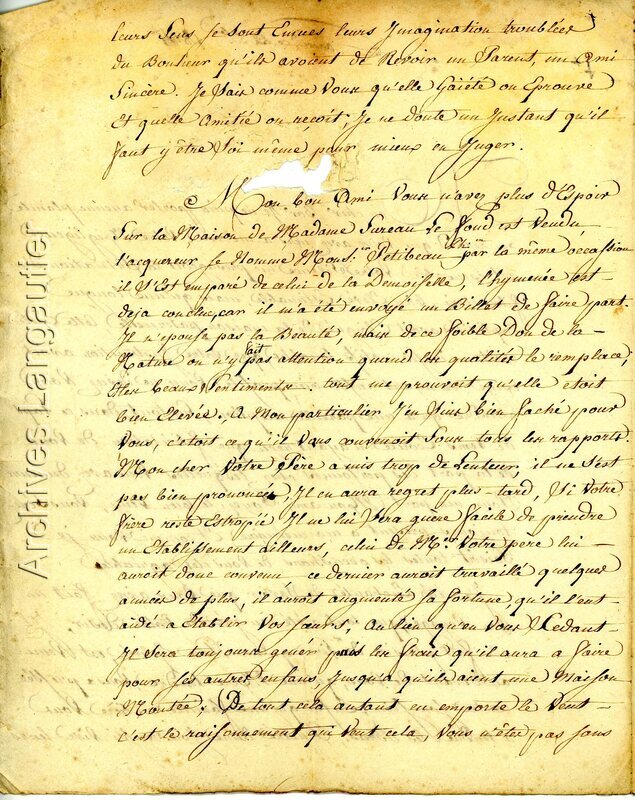 leurs Sens se sont Emues leurs Imagination troublées
du Bonheur qu'ils avoient de Revoir un Parent, un Ami
Sincère. Je Sais comme Vous qu'elle Gaiété on Eprouve
Et quelle Amitié on reçoit; Je ne doute un Instant qu'il
faut y être Soi même pour mieux en Juger.
Mon bon Ami Vous n'avez plus d'Espoir
Sur la Maison de Madame Sureau Le fond est Vendu,
l'acquereur se Nomme Mons.r Petibeau par la même occassion
il s'Est emparé de celui de la Demoiselle, l'hymenée est
deja conclue, car il m'a été envoyé un Billet de faire part.
Il n'epouse pas la Beauté, mais de ce foible Don de la
Nature on n'y fait pas attention quand les qualités le remplace,
Et les beaux Sentiments: tout me prouvoit qu'elle etoit
bien Elevée. A Mon particulier J'en Suis bien faché pour
Vous, c'étoit ce qu'il Vous convenoit Sous tous les rapports.
Mon cher Votre Père a mis trop de Lenteur, il ne s'est
pas bien prononcé, Il en aura regret plus-tard, Si Votre
frère reste Estropié Il ne lui Sera guère facile de prendre
un Etablissement ailleurs, celui de Mr. Votre père lui
auroit donc convenu, ce dernier auroit travaillé quelques
années de plus, il auroit augmenté sa fortune qu'il l'ent
aidé a Etablir Vos sœurs; Au lieu qu'en Vous Cedant
Il Sera toujours gener par les frais qu'il aura a faire
pour ses autres enfans, Jusqu'a qu'ils aient une Maison
Montée; De tout cela autant en emporte le Vent
c'est le raisonnement qui Veut cela, Vous n'étes pas sans
Archives Langautier